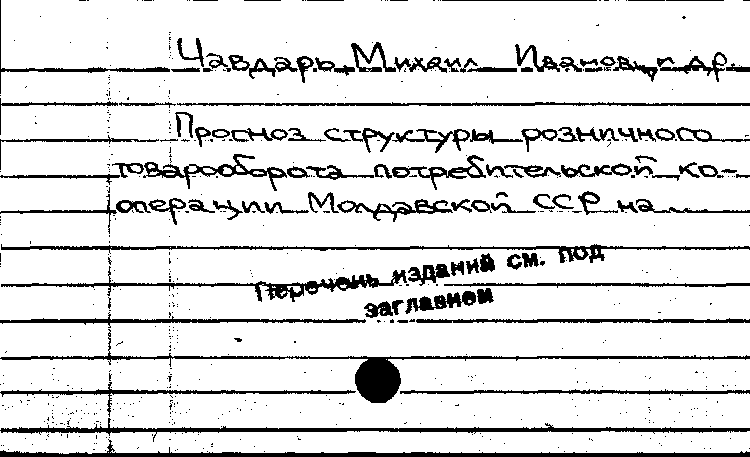 Чавдарь, Михаил Иванович и др.
Прогноз структуры розничного
товарооборота потребительской ко-
операции Молдавской ССР на ...
Перечень изданий см. под
заглавием